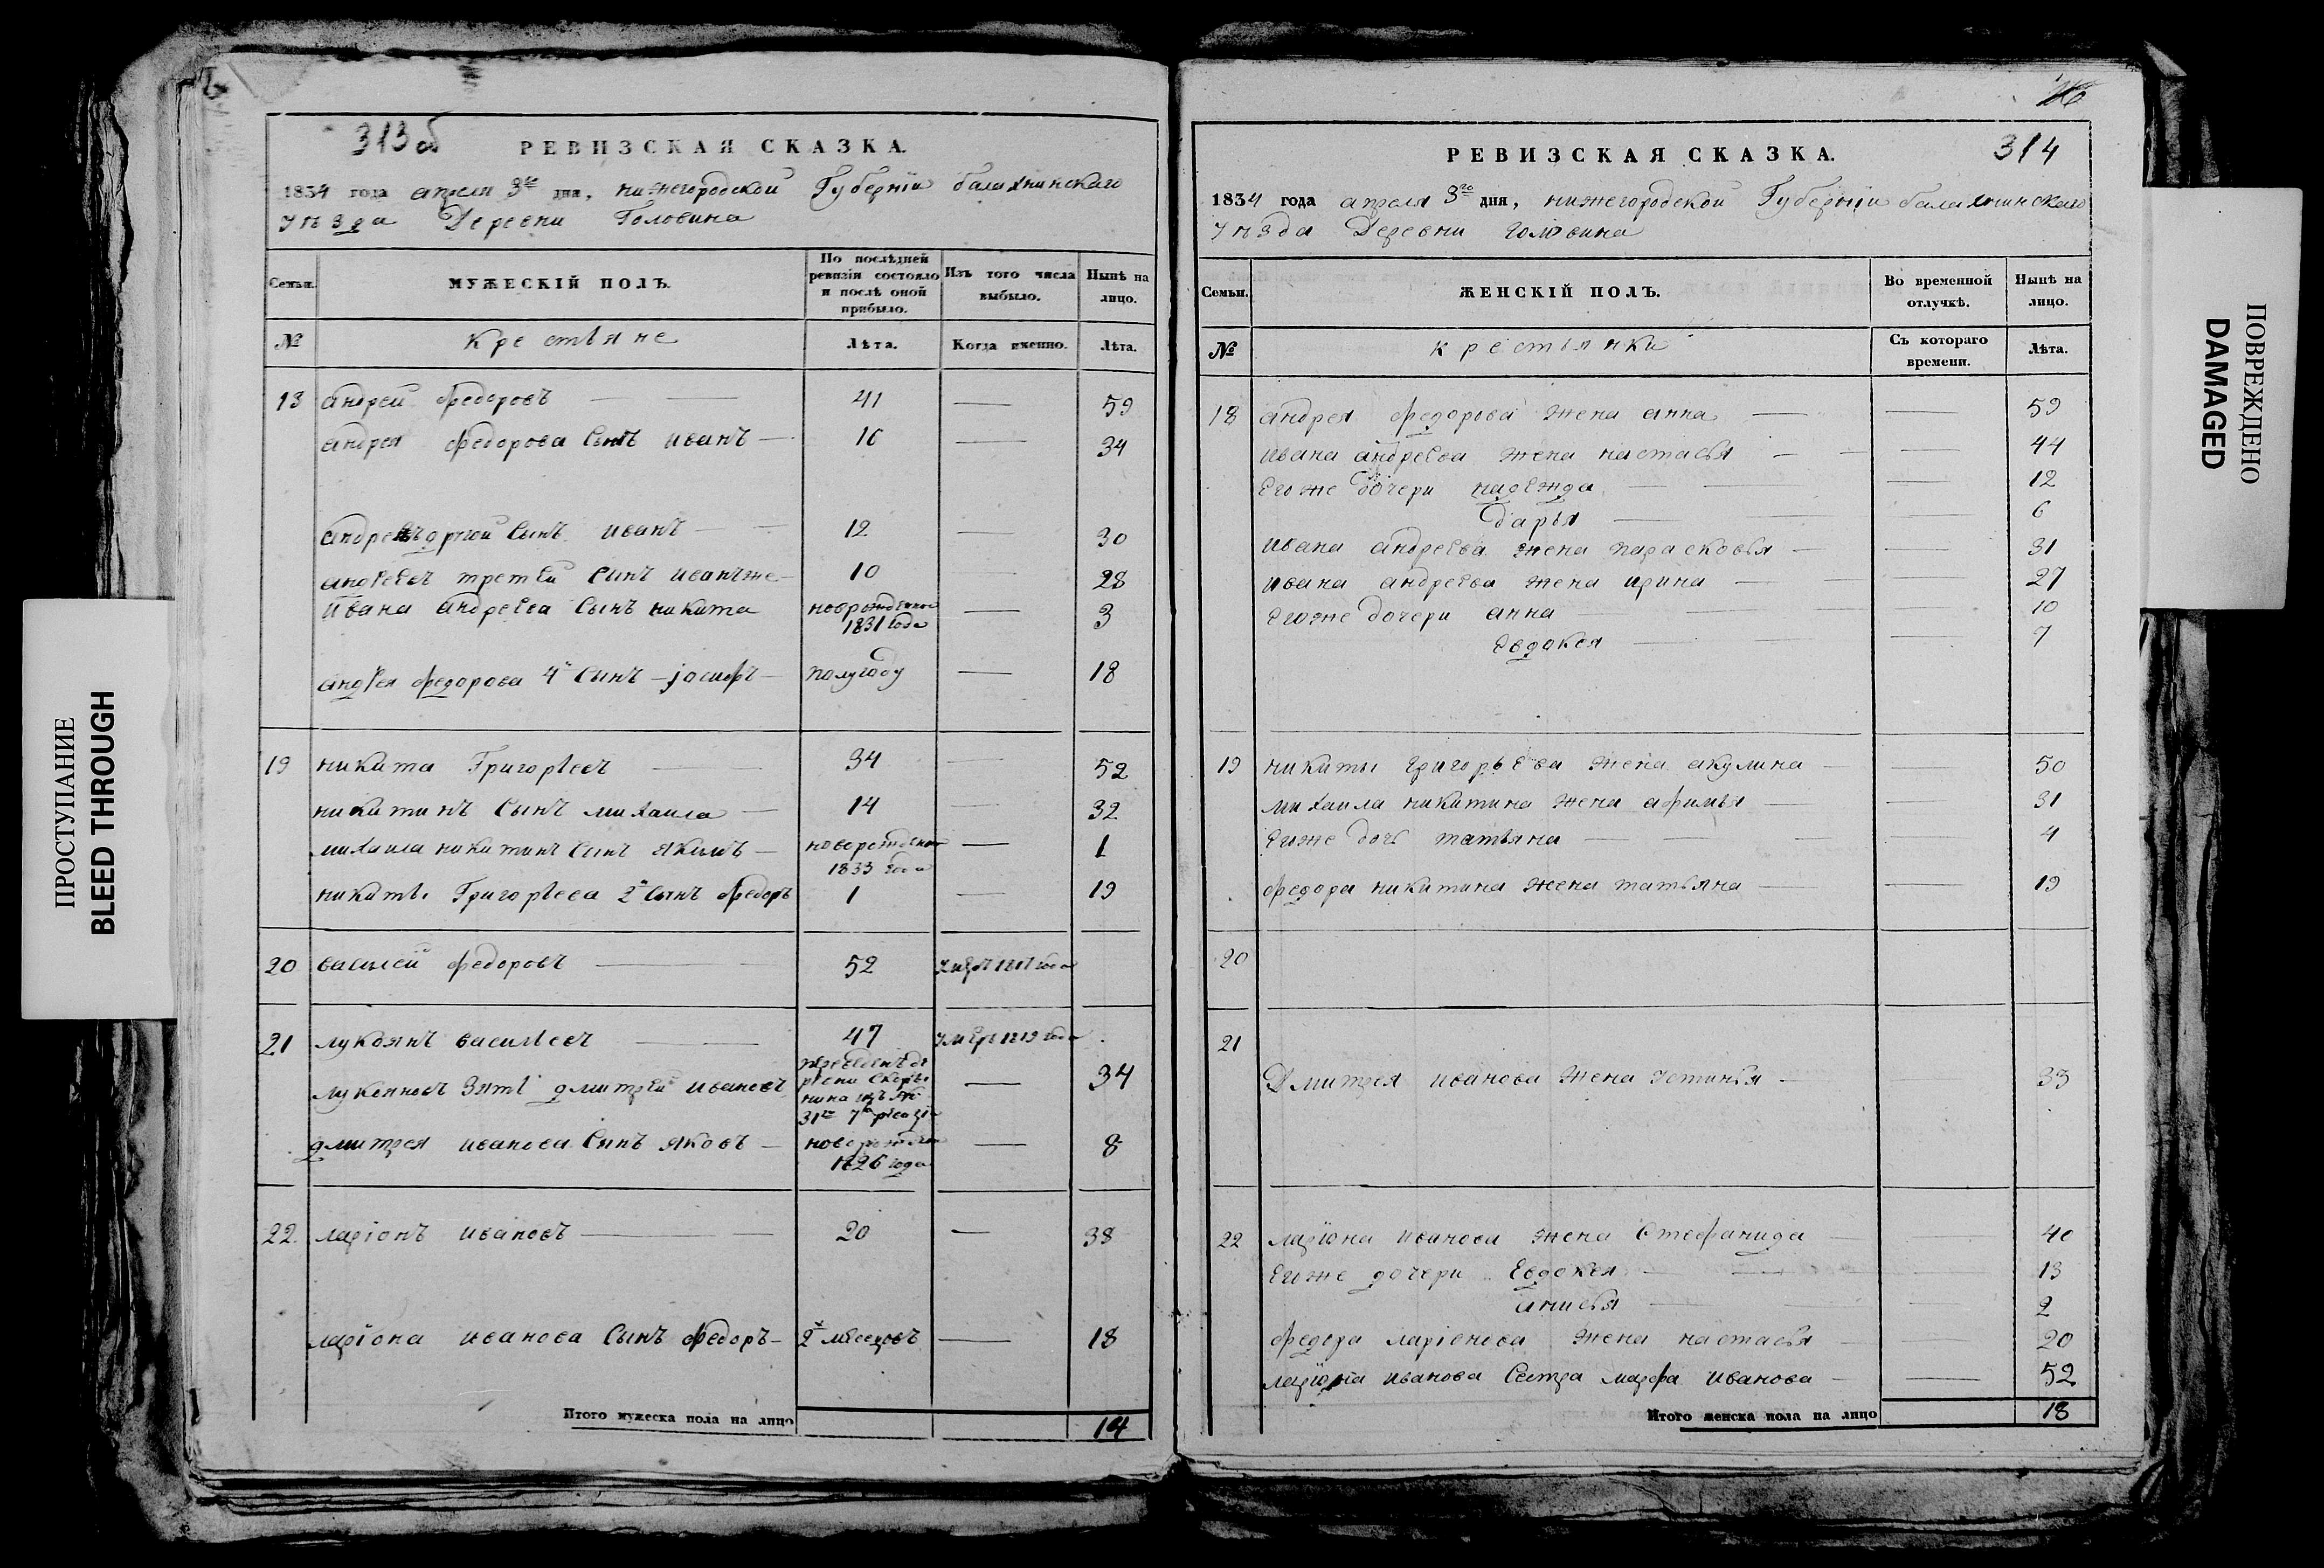 313 об
РЕВИЗСКАЯ СКАЗКА.
1834 года апреля 3го дня, нижегородской Губернïи балахнинскаго
Уезда Деревни Головина
Семьи.
МУЖЕСКІЙ ПОЛЪ.
По послѣдней ревизіи состояло и послѣ оной прибыло.
Изъ того числа выбыло.
Нынѣ на лицо.
№
крестьяне
Лѣта.
Когда именно.
Лѣта.
18 андрей федоровъ — 41 — 59
андрея федорова сынъ иванъ — 16 — 34
андреевъ другой сынъ иванъ — 12 — 30
андреевъ третей сынъ иванъ же — 10 — 28
ивана андреева сынъ никита новорожденной — 3
1831 года
андрея федорова 4й сынъ — јосифъ — полугоду — 18
19 никита Григорьевъ — 34 — 52
никитинъ сынъ михаила — 14 — 32
михаила никитинъ сынъ якимъ — новорожденной — 1
1833 года
никиты Григорьева 2й сынъ федоръ 1 — 19
20 василей федоровъ — 52 умеръ 1817 года
21 лукоянъ васильевъ — 47 умеръ 1819 года
лукояновъ зять дмитрей ивановъ — 34
дмитрея иванова сынъ яковъ — новорожден — 8
1826 года
22 ларіонъ ивановъ — 20 — 38
ларіона иванова сынъ федоръ — 2х месецовъ — 18
Итого мужеска пола на лицо 14
314
РЕВИЗСКАЯ СКАЗКА.
1834 года апреля 3го дня, нижегородской Губернïи балахнинскаго
Уезда Деревни головина
Семьи.
ЖЕНСКІЙ ПОЛЪ.
Во временной отлучкѣ.
Нынѣ на лицо.
№
крестьянки
Съ котораго времени.
Лѣта.
18 андрея федорова жена анна — — 59
ивана андреева жена настасья — — 44
егоже дочери надежда — — 12
дарья — — 6
ивана андреева жена парасковья — — 31
ивана андреева жена ирина — — 27
егоже дочери анна — — 10
евдокея — — 7
19 никиты григорьева жена акулина — — 50
михаила никитина жена афимья — — 31
егоже дочь татьяна — — 4
федора никитина жена татьяна — — 19
20
21
Дмитрея иванова жена устинья — 33
22 ларіона иванова жена стефанида — — 40
егоже дочери евдокея — — 13
анисья — — 2
федора ларіонова жена настасья — — 20
ларіона иванова сестра марфа иванова — — 52
Итого женска пола на лицо 18
ПРОСТУПАНИЕ
BLEED THROUGH
ПОВРЕЖДЕНО
DAMAGED